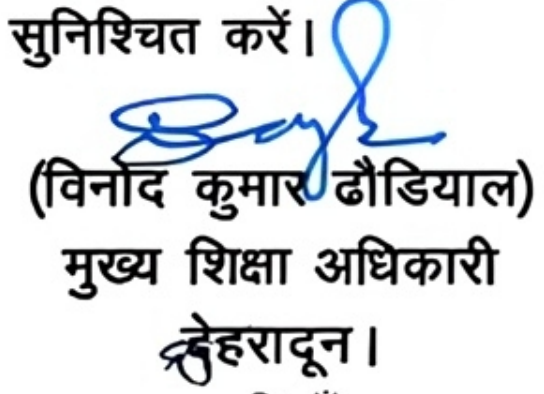 सुनिश्चित करें।
(विनोद कुमार ढौडियाल)
मुख्य शिक्षा अधिकारी
देहरादून।